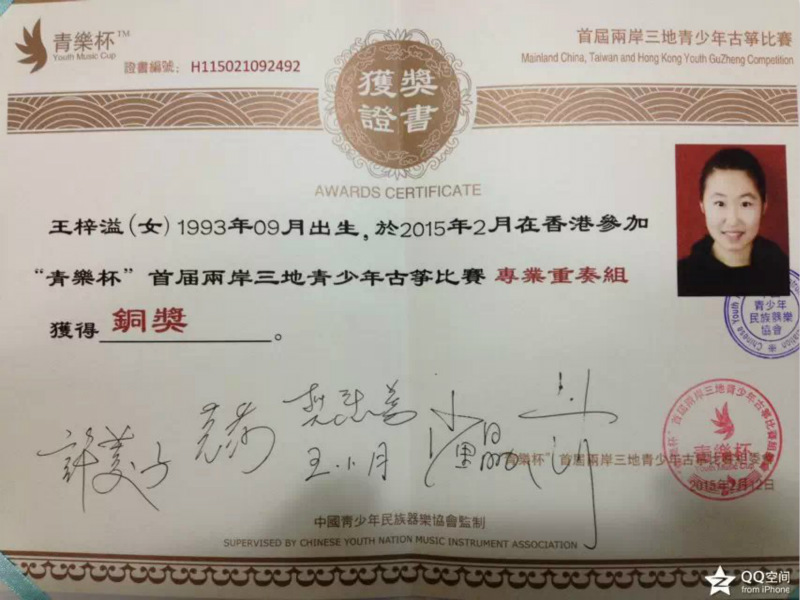 青樂杯™
Youth Music Cup
證書編號： H115021092492
首屆兩岸三地青少年古箏比賽
Mainland China, Taiwan and Hong Kong Youth GuZheng Competition
獲獎
證書
AWARDS CERTIFICATE
王梓溢(女) 1993年09月出生, 於2015年2月在香港參加
“青樂杯” 首届兩岸三地青少年古箏比賽 專業重奏組
獲得 銅獎 。
青少年
民族器樂
協會
Chinese Youth
王小月
青樂杯
“青樂杯”首屆兩岸三地青少年古箏比賽組委會
2015年2月12日
中國青少年民族器樂協會監制
SUPERVISED BY CHINESE YOUTH NATION MUSIC INSTRUMENT ASSOCIATION
QQ空间
from iPhone